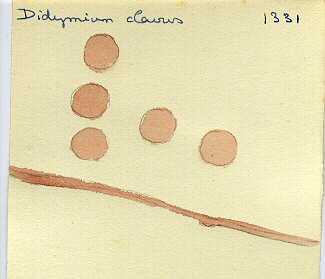 Didymium clavus 1331